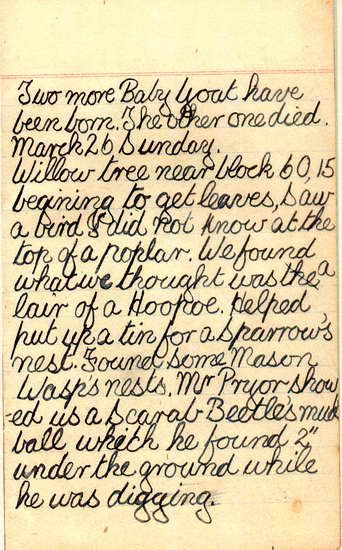 Two more Baby Goat have
been born. The other one died.
March 26, Sunday.
Willow tree near block 60, 15
begining to get leaves, Saw
a bird I did not know at the
top of a poplar. We found
what we thought was the a
lair of a Hoopoe. Helped
put up a tin for a sparrow's
nest. Found some Mason
Wasp's nests. Mr Pryor show
-ed us a Scarab Beetle's mud
ball which he found 2"
under the ground while
he was digging.